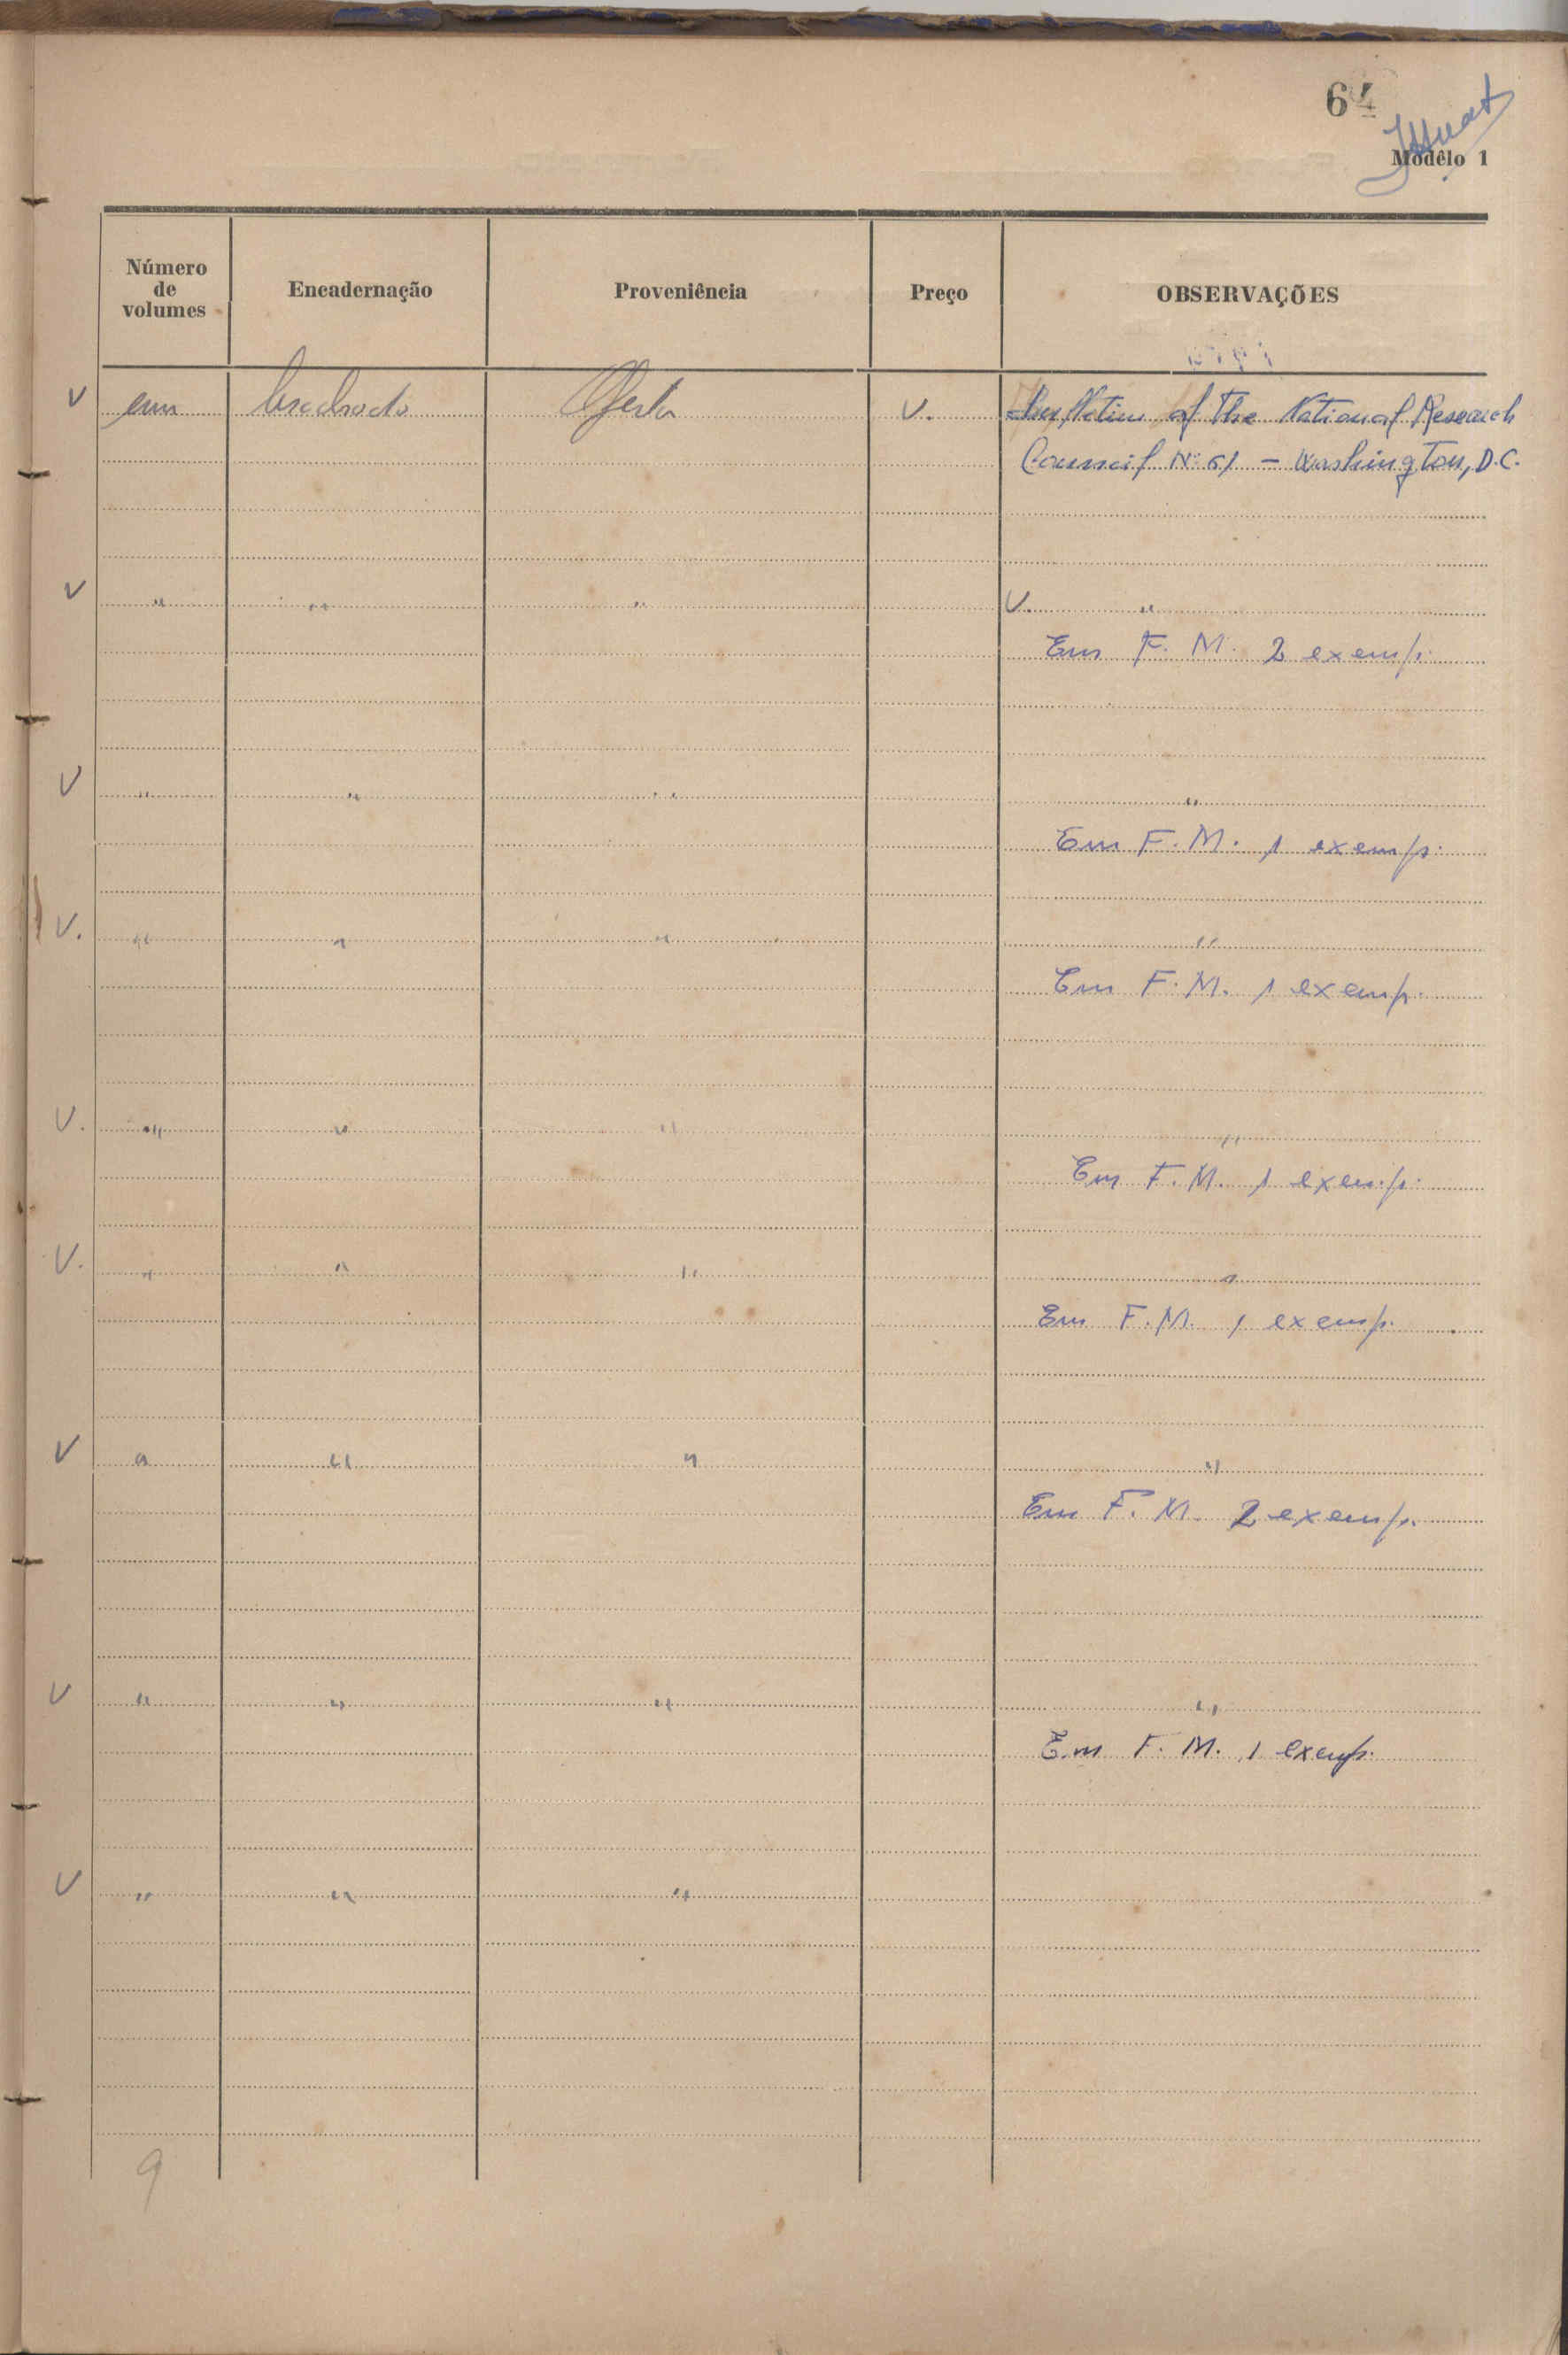 64
Modêlo 1
Número de volumes Encadernação Proveniência Preço OBSERVAÇÕES
V um brochado Oferta V. Bulletin of the National Research
Council Nº 61 - Washington, D.C.
V " " " V. "
Em F. M. 2 exemp.
V " " " "
Em F. M. 1 exemp.
V. " " " "
Em F. M. 1 exemp.
V. " " " "
Em F. M. 1 exemp.
V. " " " "
Em F. M. 1 exemp.
V " " " "
Em F. M. 2 exemp.
V " " " "
Em F. M. 1 exemp.
V " " "
9